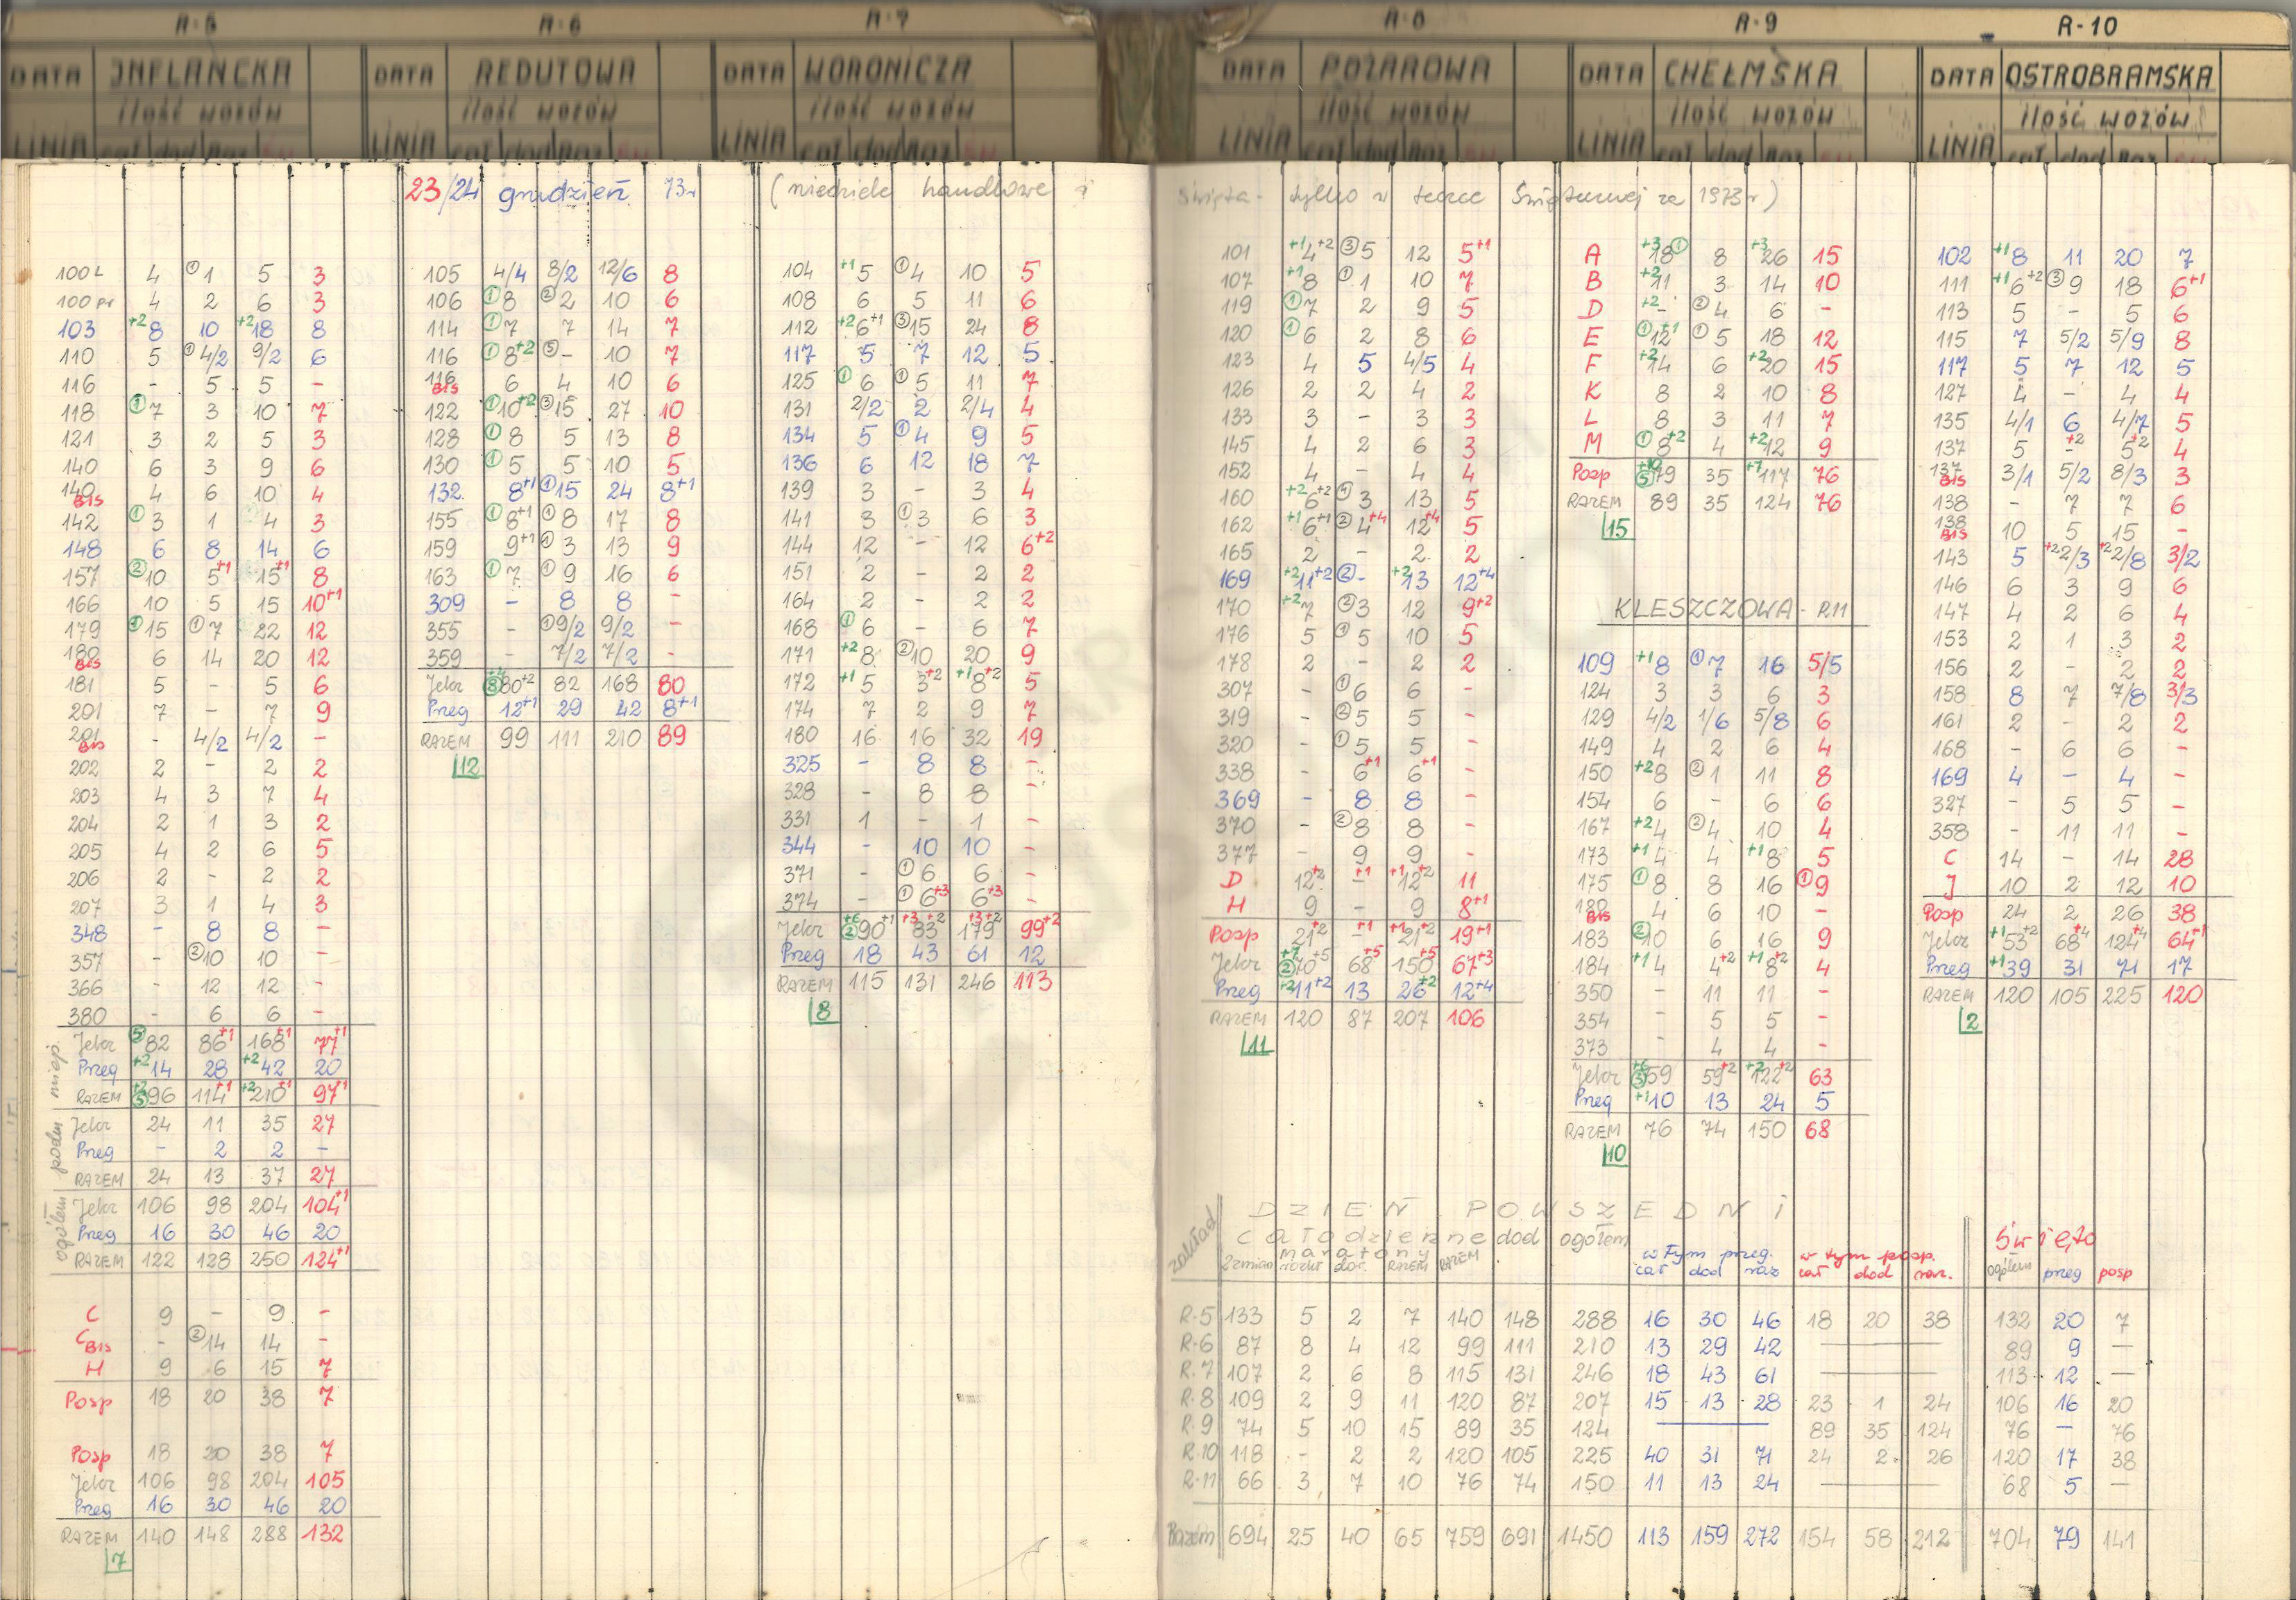 R-5 R-6 R-7 R-8 R-9 R-10
DATA INFLANCKA DATA REDUTOWA DATA WORONICZA DATA POŻAROWA DATA CHEŁMSKA DATA OSTROBRAMSKA
ilość wozów ilość wozów ilość wozów ilość wozów ilość wozów ilość wozów
LINIA LINIA LINIA LINIA LINIA LINIA
23/24 grudzień 73r (niedziele handlowe i święta - tylko w teczce Świątecznej za 1973r)
100 L 4 ①1 5 3
100 pr 4 2 6 3
103 +2 8 10 +2 18 8
110 5 ①4/2 9/2 6
116 - 5 5 -
118 ①7 3 10 7
121 3 2 5 3
140 6 3 9 6
140 BIS 4 6 10 4
142 ①3 1 4 3
148 6 8 14 6
157 ②10 5+1 15+1 8
166 10 5 15 10+1
179 ①15 ①7 22 12
180 BIS 6 14 20 12
181 5 - 5 6
201 7 - 7 9
201 BIS - 4/2 4/2 -
202 2 - 2 2
203 4 3 7 4
204 2 1 3 2
205 4 2 6 5
206 2 - 2 2
207 3 1 4 3
348 - 8 8 -
357 - ②10 10 -
366 - 12 12 -
380 - 6 6 -
Jelcz ⑤82 86+1 168+1 77+1
Przeg +2 14 28 +2 42 20
RAZEM +2 ⑤96 114+1 +2 210+1 97+1
Jelcz 24 11 35 27
Przeg - 2 2 -
RAZEM 24 13 37 27
ogółem podm miejs.
Jelcz 106 98 204 104+1
Przeg 16 30 46 20
RAZEM 122 128 250 124+1
C 9 - 9 -
C BIS - ②14 14 -
H 9 6 15 7
Posp 18 20 38 7
Posp 18 20 38 7
Jelcz 106 98 204 105
Przeg 16 30 46 20
RAZEM 140 148 288 132
7
105 4/4 8/2 12/6 8
106 ①8 ②2 10 6
114 ①7 7 14 7
116 ①8+2 ⑤- 10 7
116 BIS 6 4 10 6
122 ①10+2 ③15 27 10
128 ①8 5 13 8
130 ①5 5 10 5
132 8+1 ①15 24 8+1
155 ①8+1 ①8 17 8
159 9+1 ①3 13 9
163 ①7 ①9 16 6
309 - 8 8 -
355 - ①9/2 9/2 -
359 - 7/2 7/2 -
Jelcz +4 ⑧80+2 82 168 80
Przeg 12+1 29 42 8+1
RAZEM 99 111 210 89
12
104 +1 5 ①4 10 5
108 6 5 11 6
112 +2 6+1 ③15 24 8
117 5 7 12 5
125 ①6 ①5 11 7
131 2/2 2 2/4 4
134 5 ①4 9 5
136 6 12 18 7
139 3 - 3 4
141 3 ①3 6 3
144 12 - 12 6+2
151 2 - 2 2
164 2 - 2 2
168 ①6 - 6 7
171 +2 8 ②10 20 9
172 +1 5 3+2 +1 8+2 5
174 7 2 9 7
180 16 16 32 19
325 - 8 8 -
328 - 8 8 -
331 1 - 1 -
344 - 10 10 -
371 - ①6 6 -
374 - ①6+3 6+3 -
Jelcz +6 ②90+1 +3 83+2 +3 179+2 99+2
Przeg 18 43 61 12
RAZEM 115 131 246 113
8
101 +1 4+2 ③5 12 5+1
107 +1 8 ①1 10 7
119 ①7 2 9 5
120 ①6 2 8 6
123 4 5 4/5 4
126 2 2 4 2
133 3 - 3 3
145 4 2 6 3
152 4 - 4 4
160 +2 6+2 ④3 13 5
162 +1 6+1 ②4+4 12+4 5
165 2 - 2 2
169 +2 11+2 ②- +2 13 12+4
170 +2 7 ②3 12 9+2
176 5 ①5 10 5
178 2 - 2 2
307 - ①6 6 -
319 - ②5 5 -
320 - ①5 5 -
338 - 6+1 6+1 -
369 - 8 8 -
370 - ②8 8 -
377 - 9 9 -
D 12+2 -+1 +1 12+2 11
H 9 - 9 8+1
Posp 21+2 -+1 +1 21+2 19+1
Jelcz +7 ②70+5 68+5 150+5 67+3
Przeg +2 11+2 13 26+2 12+4
RAZEM 120 87 207 106
11
A +3 18① 8 +3 26 15
B +2 11 3 14 10
D +2 - ②4 6 -
E ①12+1 ①5 18 12
F +2 14 6 +2 20 15
K 8 2 10 8
L 8 3 11 7
M ①8+2 4 +2 12 9
Posp +10 ⑤79 35 +7 117 76
RAZEM 89 35 124 76
15
KLESZCZOWA - R11
109 +1 8 ①7 16 5/5
124 3 3 6 3
129 4/2 1/6 5/8 6
149 4 2 6 4
150 +2 8 ②1 11 8
154 6 - 6 6
167 +2 4 ②4 10 4
173 +1 4 4 +1 8 5
175 ①8 8 16 ①9
180 BIS 4 6 10 -
183 ②10 6 16 9
184 +1 4 4+2 +1 8+2 4
350 - 11 11 -
354 - 5 5 -
373 - 4 4 -
Jelcz +6 ③59 59+2 +2 122+2 63
Przeg +1 10 13 24 5
RAZEM 76 74 150 68
10
102 +1 8 11 20 7
111 +1 6+2 ③9 18 6+1
113 5 - 5 6
115 7 5/2 5/9 8
117 5 7 12 5
127 4 - 4 4
135 4/1 6 4/7 5
137 5 -+2 5+2 4
137 BIS 3/1 5/2 8/3 3
138 - 7 7 6
138 BIS 10 5 15 -
143 5 +2 2/3 +2 2/8 3/2
146 6 3 9 6
147 4 2 6 4
153 2 1 3 2
156 2 - 2 2
158 8 7 7/8 3/3
161 2 - 2 2
168 - 6 6 -
169 4 - 4 -
327 - 5 5 -
358 - 11 11 -
C 14 - 14 28
J 10 2 12 10
Posp 24 2 26 38
Jelcz +1 53+2 68+4 124+4 64+1
Przeg +1 39 31 71 17
RAZEM 120 105 225 120
2
DZIEŃ POWSZEDNI
zakład całodzienne dod ogółem w tym przeg. w tym posp. Święto
maratony
2 zmian rozkł dod. RAZEM RAZEM cał dod raz cał dod raz. ogółem przeg posp
R-5 133 5 2 7 140 148 288 16 30 46 18 20 38 132 20 7
R-6 87 8 4 12 99 111 210 13 29 42 — 89 9 —
R-7 107 2 6 8 115 131 246 18 43 61 — 113 12 —
R-8 109 2 9 11 120 87 207 15 13 28 23 1 24 106 16 20
R-9 74 5 10 15 89 35 124 — 89 35 124 76 — 76
R-10 118 - 2 2 120 105 225 40 31 71 24 2 26 120 17 38
R-11 66 3 7 10 76 74 150 11 13 24 — 68 5 —
Razem 694 25 40 65 759 691 1450 113 159 272 154 58 212 704 79 141